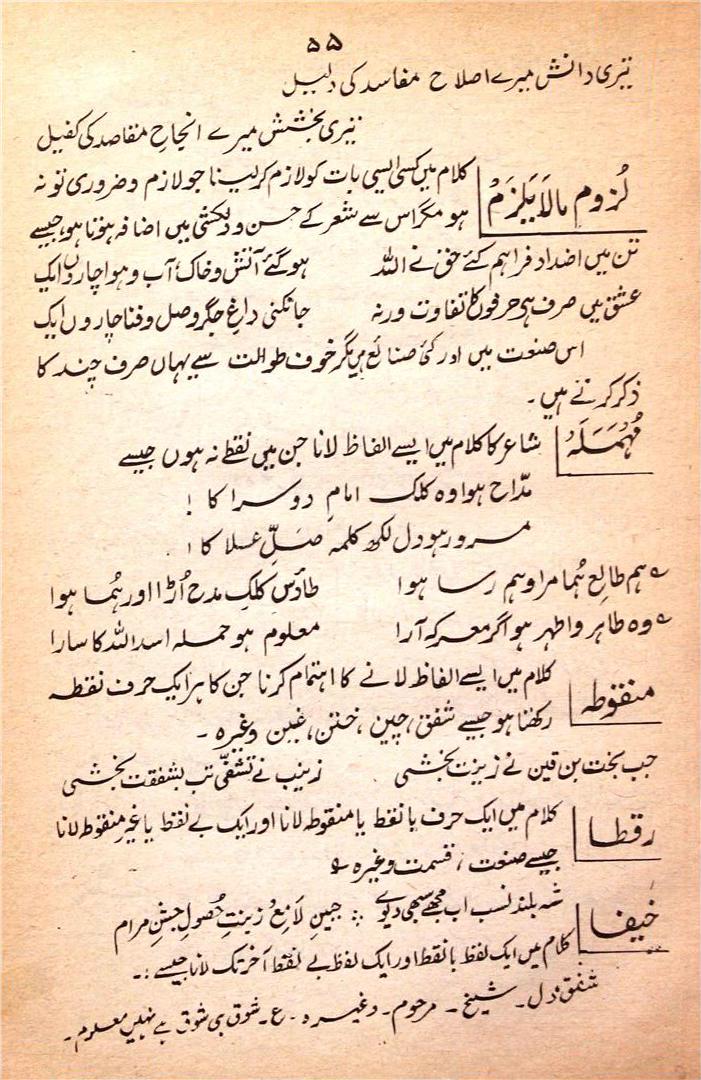 ۵۵
تیری دانش میرے اصلاح مفاسد کی دلیل
تیری بخشش میرے انجاحِ مقاصد کی کفیل
لُزوم مالَایَلزَمْ کلام میں کسی ایسی بات کو لازم کر لینا جو لازم و ضروری تو نہ
ہو مگر اس سے شعر کے حسن و دلکشی میں اضافہ ہوتا ہو، جیسے
تن میں اضداد فراہم کئے حق نے اللہ ہو گئے آتش و خاک آب و ہوا چاروں ایک
عشق میں صرف ہی حرفوں کا تفاوت ورنہ جانکنی داغِ جگر وصل و فنا چاروں ایک
اس صنعت میں اور کئی صنائع ہیں مگر خوف طوالت سے یہاں صرف چند کا
ذکر کرتے ہیں۔
مُہْمَلَہْ شاعر کا کلام میں ایسے الفاظ لانا جن میں نقطے نہ ہوں جیسے
مدّاح ہوا وہ کلک امامِ دوسرا کا !
مسرور ہو دل لکھ کلمہ صَلِّ علا کا !
ہم طالع ہُما مرا وہم رسا ہوا طاؤس کلکِ مدح اُڑا اور ہُما ہوا
وہ طاہر واطہر ہو اگر معرکہ آرا معلوم ہو حملہ اسد اللہ کا سارا
منقوطہ کلام میں ایسے الفاظ لانے کا اہتمام کرنا جن کا ہر ایک حرف نقطہ
رکھتا ہو جیسے شفق، جین، ختن، غبن وغیرہ۔
جب بخت بن قین نے زینت بخشی زینب نے تشفّی تب بشفقت بخشی
رقطا کلام میں ایک حرف با نقط یا منقوطہ لانا اور ایک بے نقط یا غیر منقوطہ لانا
جیسے صنعت، قسمت وغیرہ
شہ بلند نسب اب مجھے سبھی دیوے ؞ جبینِ لامع زینتِ حُصولِ جشنِ مرام
خیفا کلام میں ایک لفظ با نقط اور ایک لفظ بے نقط آخر تک لانا جیسے :۔
شفق، دل۔ شیخ۔ مرحوم۔ وغیرہ۔ ع۔ شوق ہی شوق ہے نہیں معلوم۔